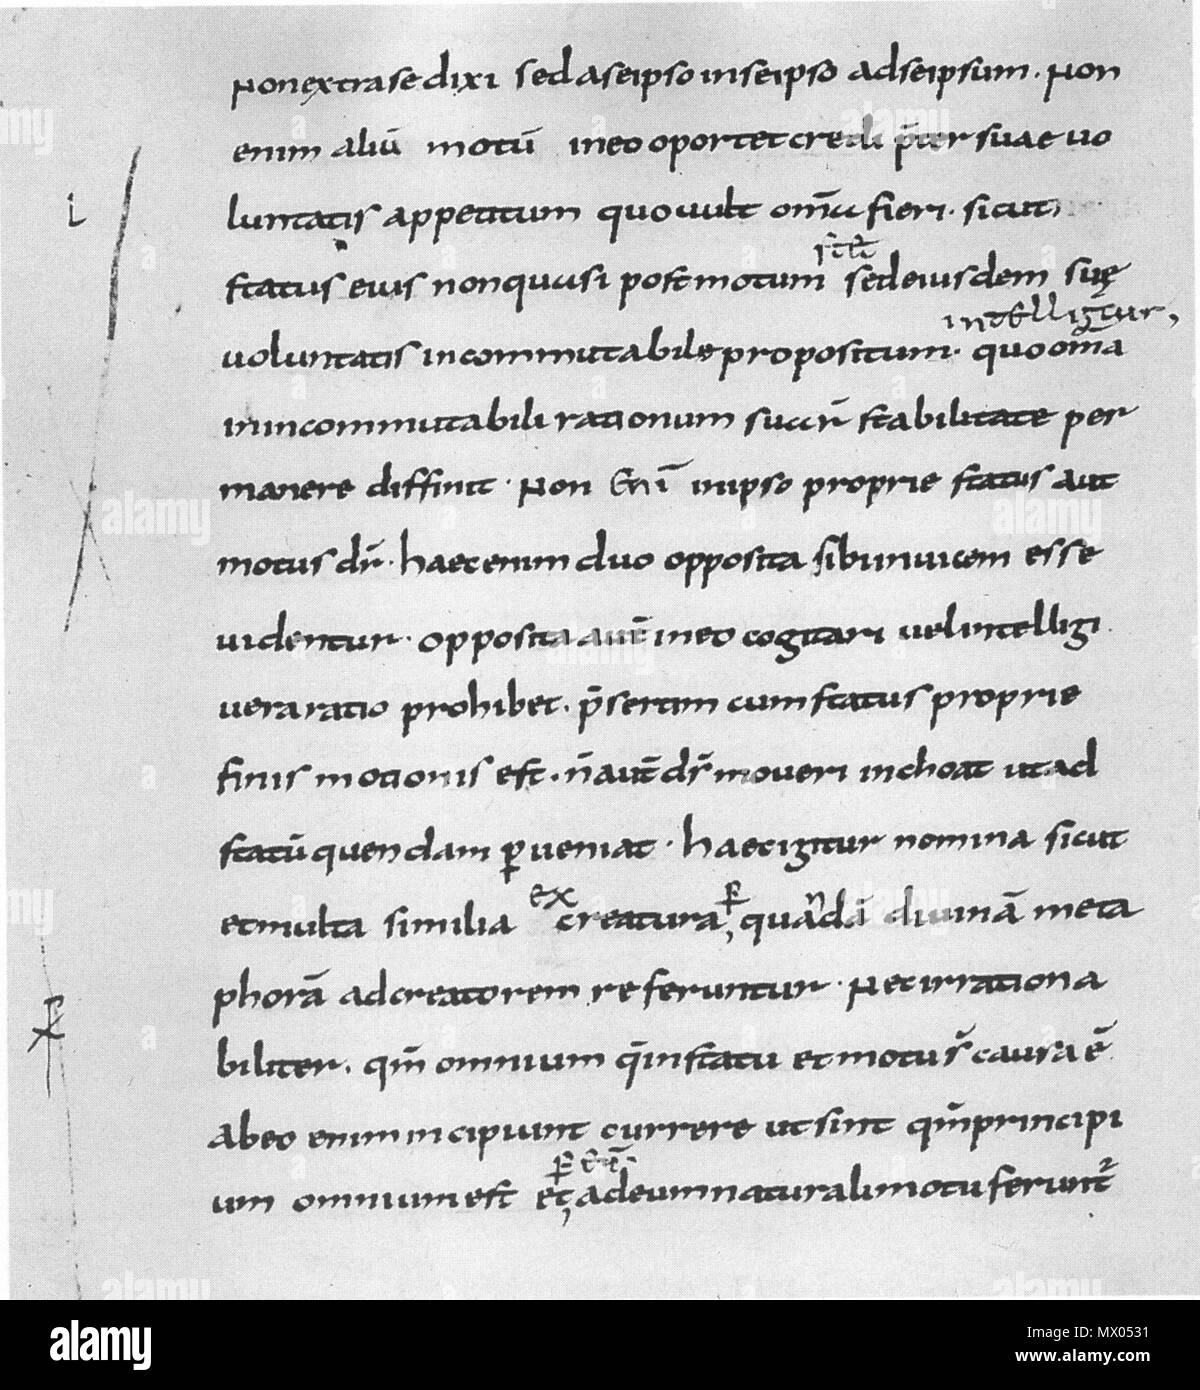 Non extra se dixi sed a se ipso in se ipso ad se ipsum. Non
enim aliū motū in eo oportet credi p̄ter suae uo
luntatis appetitum quo uult om̄a fieri. sicut
ſtē
status eius non quasi post motum sed eiusdem suę
intelligitur,
uoluntatis incommutabile propositum. quo om̄a
in incommutabili rationum suarū stabilitate per
manere diffinit. Non enī in ipso proprie status aut
motus dr̄. haec enim duo opposita sibi inuicem esse
uidentur. opposita autē in eo cogitari uel intelligi
uera ratio prohibet. p̄sertim cum status proprie
finis motionis est. n̄ autē dr̄ moueri inchoat ut ad
statū quendam ꝑueniat. haec igitur nomina sicut
ex ꝑ
et multa similia creatura, quandā diuinā meta
phorā ad creatorem referuntur. Nec irrationa
biliter. qm̄ omnium q̄ in statu et motu s̄ causa ē
ab eo enim incipiunt currere ut sint qm̄ principi
ꝑ eū
um omnium est et, ad eum naturali motu ferunt᷑
alamy
MX0531
www.alamy.com